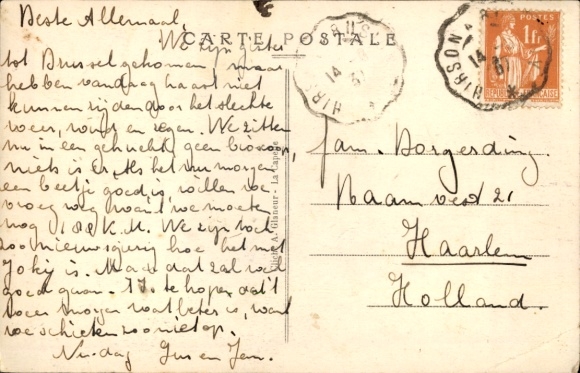 Beste Allemaal,
CARTE POSTALE
We zijn
tot Brussel gekomen, maar
hebben vandaag haast niet
kunnen rijden door het slechte
weer, wind en regen. We zitten
nu in een gehucht, geen bioscoop,
niets is er. Als het weer morgen
een beetje goed is, willen we
vroeg weg want we moeten
nog 188 K.M. We zijn toch
zoo nieuwsgierig hoe het met
Joky is. Maar dat zal wel
goed gaan. 't Is te hopen dat 't
weer morgen wat beter is, want
we schieten zoo niet op.
Nu dag Jus en Jan.
Cliché A. Glaneur - La Capelle
HIRSON
14
HIRSON
14
POSTES
1 Fr
REPUBLIQUE FRANCAISE
Fam. Borgersding
Raamvest 21
Haarlem
Holland.